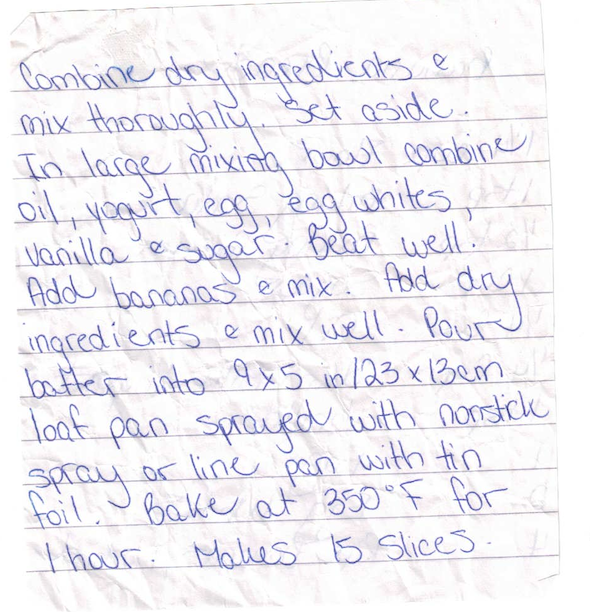 Combine dry ingredients &
mix thoroughly. Set aside.
In large mixing bowl combine
oil, yogurt, egg, egg whites,
vanilla & sugar. Beat well.
Add bananas & mix. Add dry
ingredients & mix well. Pour
batter into 9x5 in/23x13cm
loaf pan sprayed with nonstick
spray or line pan with tin
foil. Bake at 350°F for
1 hour. Makes 15 slices.